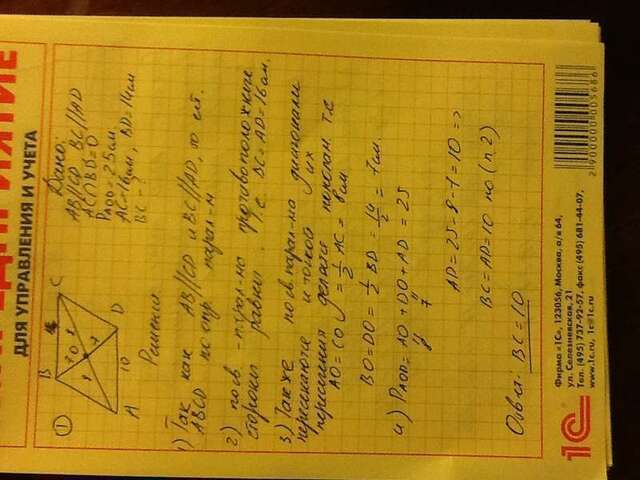 ПРИЯТИЕ
ДЛЯ УПРАВЛЕНИЯ И УЧЕТА
①
B
C
O
7
A
10
D
Дано:
AB//CD BC//AD
AC∩BD=O
P AOD = 25 см.
AC=16см, BD=14см
BC - ?
Решение
1) Так как AB//CD и BC//AD, то
ABCD по опр. парал-м
2) по св. парал-ма противоположные
стороны равны. т.е. BC = AD = 16 см.
3) Также по св парал-ма диагонали
пересекаются и точкой их
пересечения делятся пополам. т.е
AO = CO = 1/2 AC = 8 см
BO = DO = 1/2 BD = 14/2 = 7 см.
4) P AOD = AO + DO + AD = 25
8 7
AD = 25 - 8 - 7 = 10 =>
BC = AD = 10 по (п. 2)
Ответ: BC = 10
1С
Фирма "1С", 123056, Москва, а/я 64,
ул. Селезневская, 21
Тел. (495) 737-92-57, факс (495) 681-44-07,
www.1c.ru, 1c@1c.ru
2900000005686